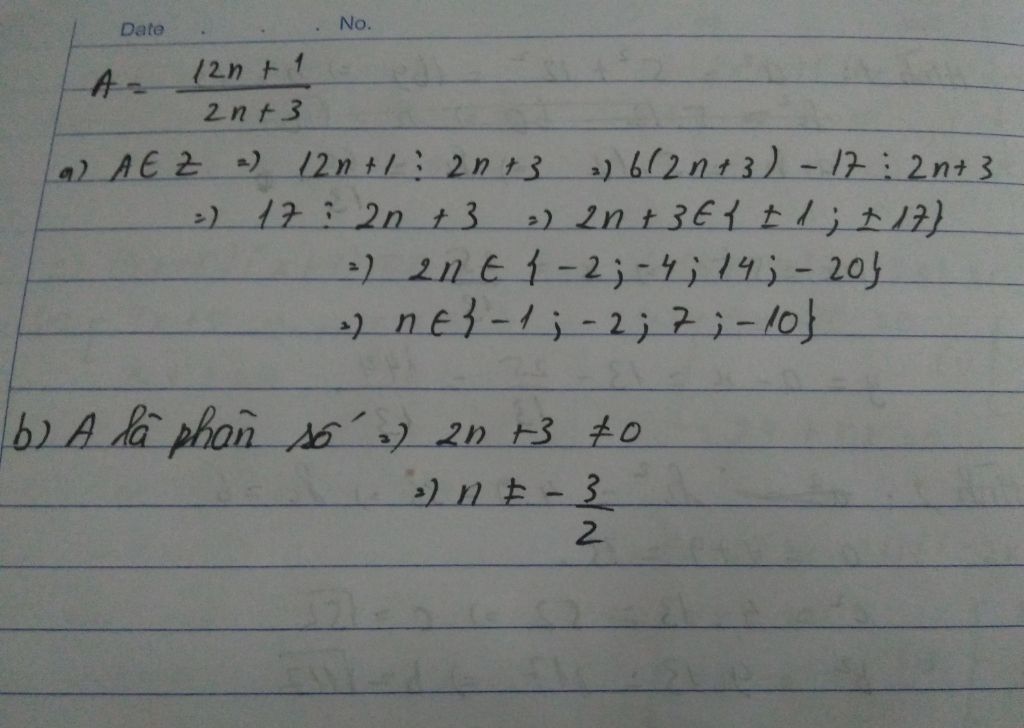 Date . . . No.
A = \frac{12n + 1}{2n + 3}
a) A ∈ Z => 12n + 1 ⋮ 2n + 3 => 6(2n + 3) - 17 ⋮ 2n + 3
=> 17 ⋮ 2n + 3 => 2n + 3 ∈ { ± 1 ; ± 17}
=> 2n ∈ { -2 ; -4 ; 14 ; - 20}
=> n ∈ { -1 ; -2 ; 7 ; -10}
b) A là phân số => 2n + 3 ≠ 0
=> n ≠ - \frac{3}{2}